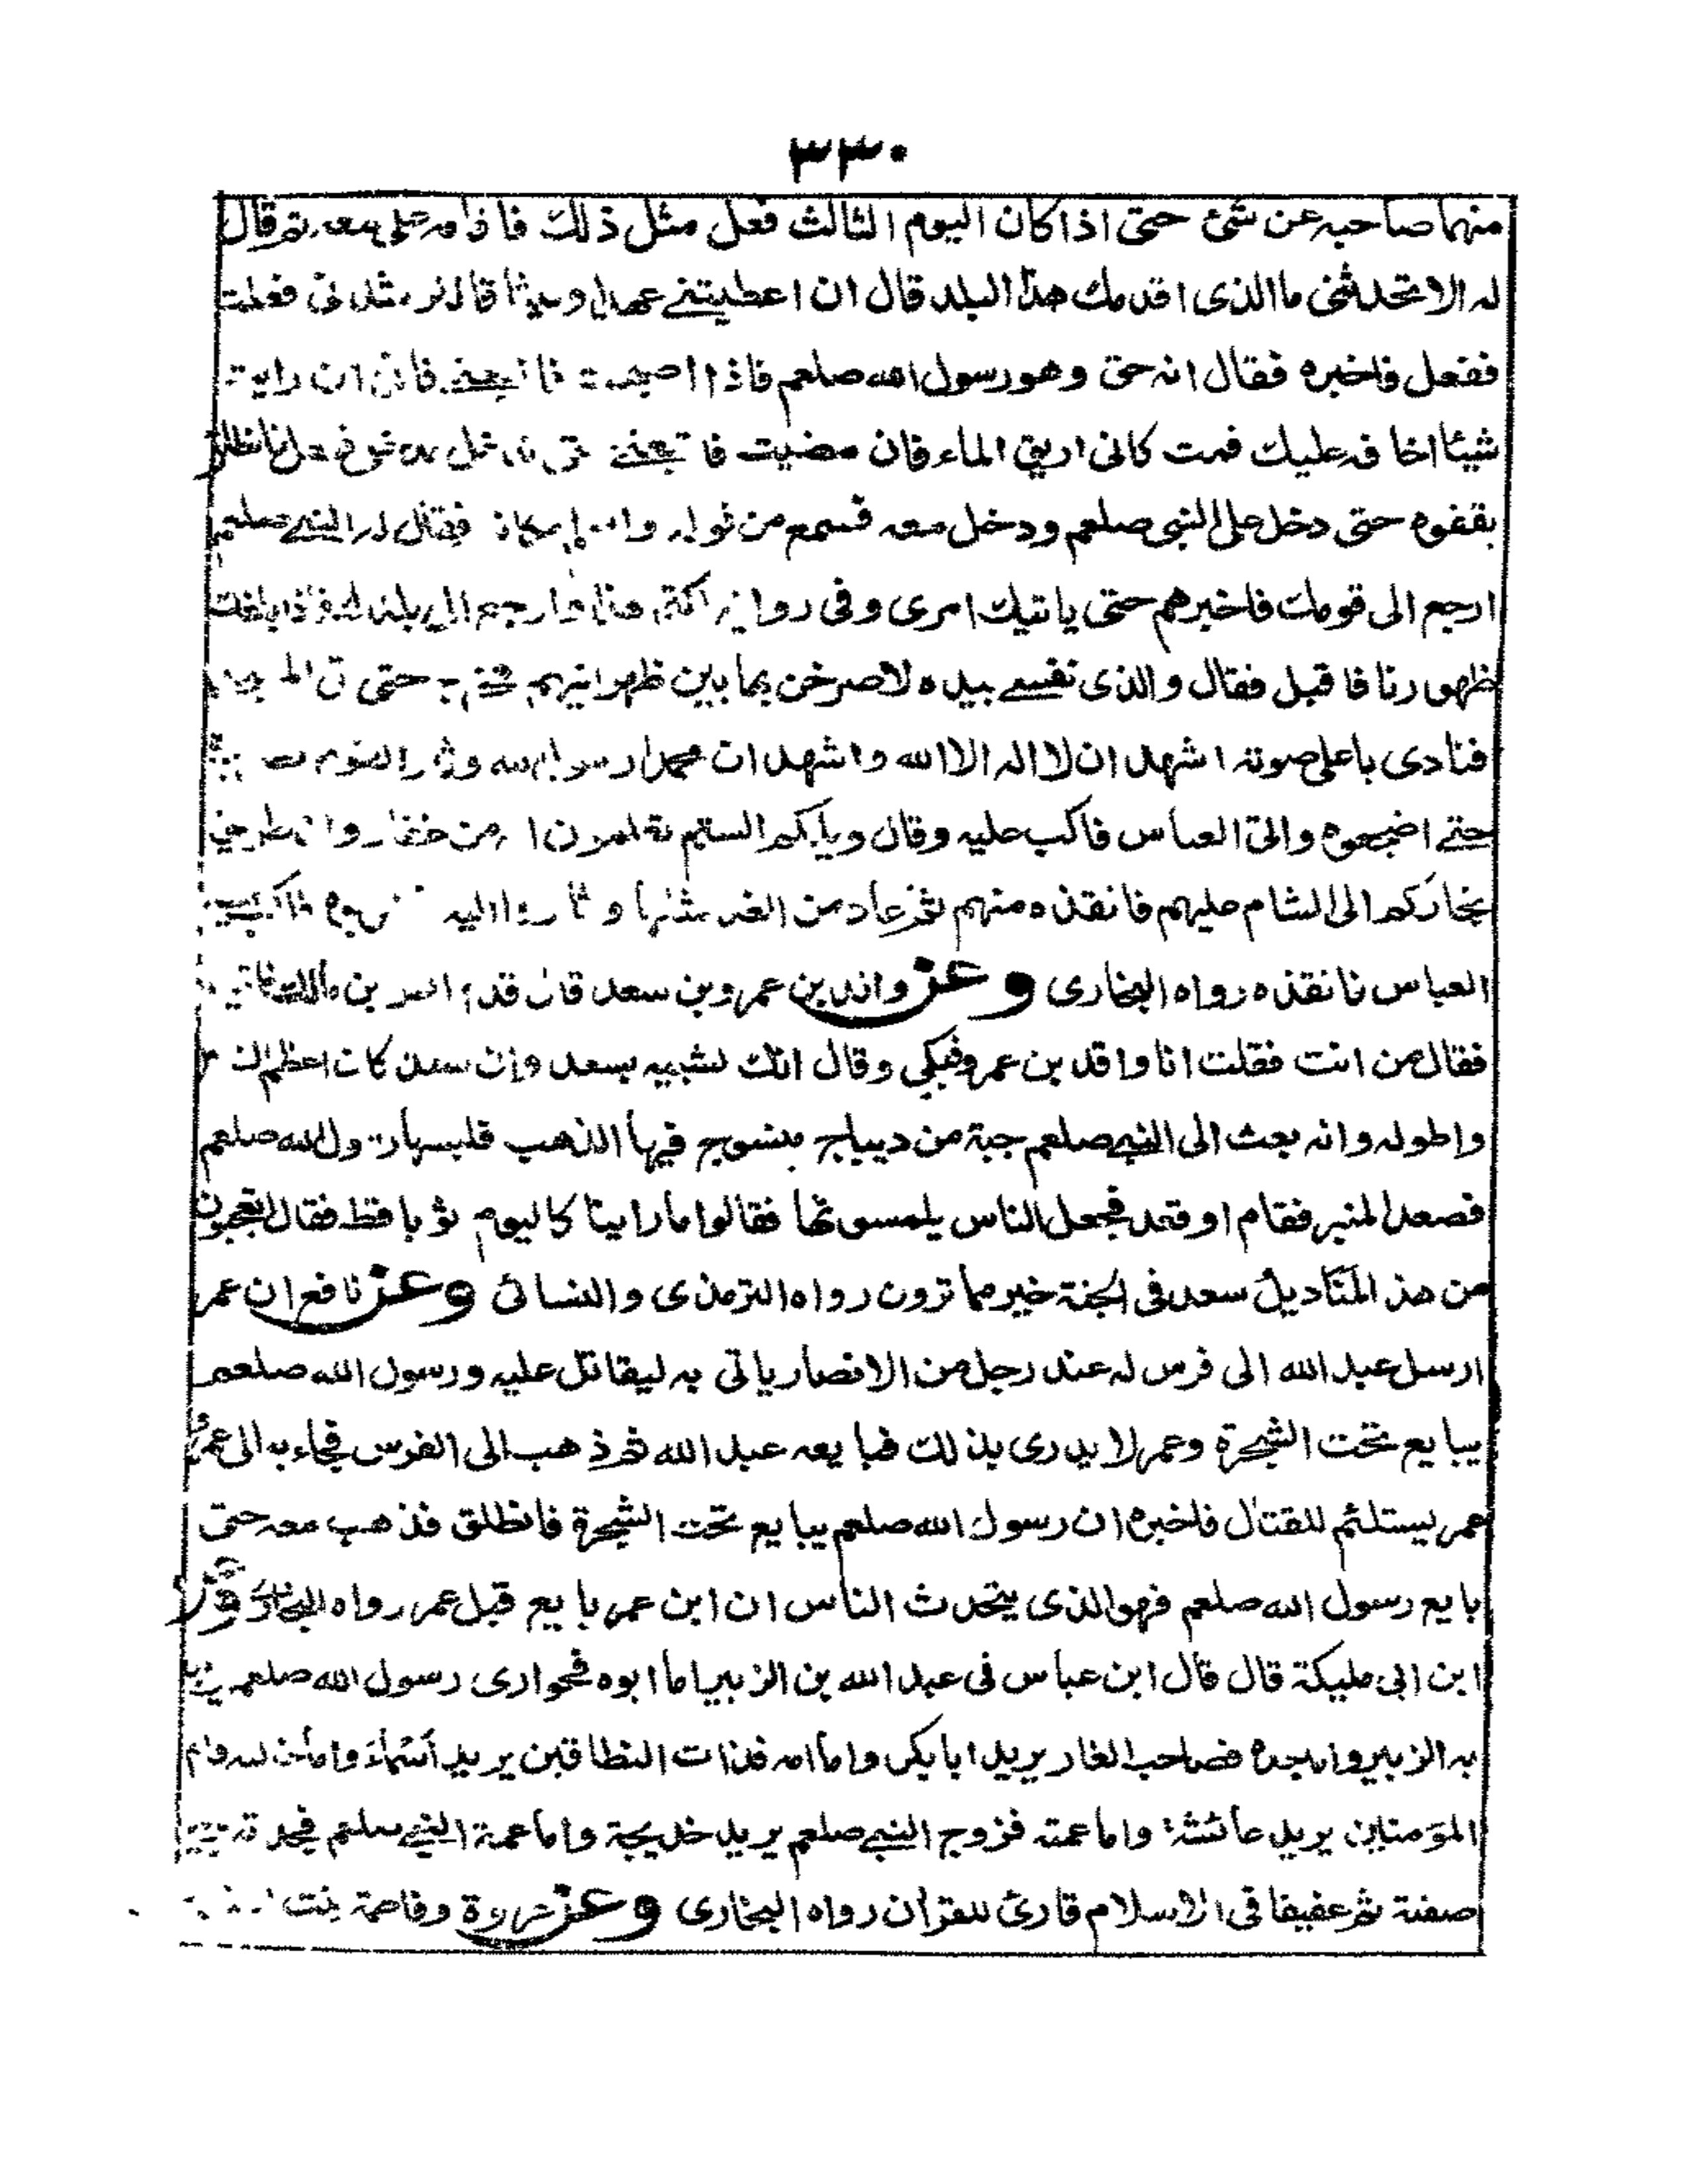 ٣٣٠
منهما صاحبه عن شئ حتى اذا كان اليوم الثالث فعل مثل ذلك فاقامه على معه ثم قال
له الا تحدثنى ما الذى اقدمك هذا البلد قال ان اعطيتنے عهدا وميثاقا لترشدنى فعلت
ففعل فاخبره فقال انه حق وهو رسول الله صلعم فاذا اصبحت فاتبعنے فانى ان رايت
شيئا اخافه عليك قمت كانى اريق الماء فان مضيت فاتبعنے حتى تدخل مدخلى ففعل فانطلق
يقفوه حتى دخل على النبى صلعم ودخل معه فسمع من قوله واسلم مكانه فقال له النبے صلعم
ارجع الى قومك فاخبرهم حتى ياتيك امرى وفى رواية اكتم هذا وارجع الى بلدك فاذا بلغك
ظهورنا فاقبل فقال والذى نفسے بيده لاصرخن بها بين ظهرانيهم فخرج حتى اتى المسجد
فنادى باعلى صوته اشهد ان لا اله الا الله واشهد ان محمدا رسول الله وثار القوم
حتے اضجعوه واتى العباس فاكب عليه وقال ويلكم الستم تعلمون انه من غفار وان طريق
تجاركم الى الشام عليهم فانقذه منهم ثم عاد من الغد بمثلها وثاروا اليه فاكب
العباس فانقذه رواه البخارى وعن واقد بن عمرو بن سعد قال قدم انس بن مالك فاتيته
فقال من انت فقلت انا واقد بن عمرو فبكى وقال انك لشبيه بسعد وان سعدا كان اعظم الناس
واطوله وانه بعث الى النبے صلعم جبة من ديباج منسوج فيها الذهب فلبسها رسول الله صلعم
فصعد المنبر فقام او قعد فجعل الناس يلمسونها فقالوا ما راينا كاليوم ثوبا قط فقال اتعجبون
من هذ المناديل سعد فى الجنة خير مما ترون رواه الترمذى والنسائى وعن نافع ان عمر
ارسل عبد الله الى فرس له عند رجل من الانصار ياتى به ليقاتل عليه ورسول الله صلعم
يبايع تحت الشجرة وعمر لا يدرى بذلك فبايعه عبد الله ثم ذهب الى الفرس فجاء به الى عمر و
عمر يستلئم للقتال فاخبره ان رسول الله صلعم يبايع تحت الشجرة فانطلق فذهب معه حتى
بايع رسول الله صلعم فهو الذى يتحدث الناس ان ابن عمر بايع قبل عمر رواه البخارى وعن
ابن ابى مليكة قال قال ابن عباس فى عبد الله بن الزبير اما ابوه فحوارى رسول الله صلعم يريد
به الزبير واما جده فصاحب الغار يريد ابا بكر واما امه فذات النطاقين يريد اسماء واما خالته فام
المؤمنين يريد عائشة واما عمته فزوج النبے صلعم يريد خديجة واما عمة النبے صلعم فجدته يريد
صفية ثم عفيفا فى الاسلام قارئ للقران رواه البخارى وعن عروة وفاطمة بنت